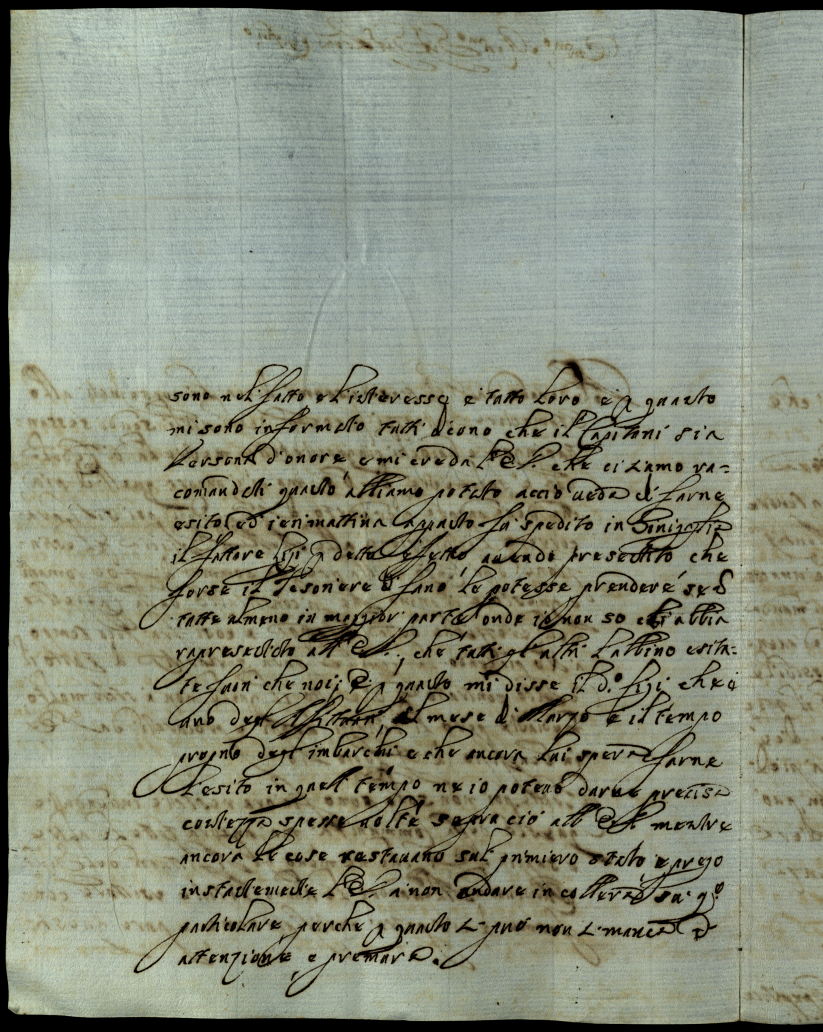 sono nel fatto e l'interesse è tutto loro e p quanto
mi sono informato tutti dicono che il Capitani sia
Persona d'onore e mi creda V.E. che ci siamo ra=
comandati quanto abbiamo potuto acciò veda di farne
esito, ed ieri mattina appunto hà spedito in Sinigalia
il fattore p detto effetto avendo presentito che
forse il Tesoriere di fano le potesse prendere se
tutte almeno in maggior parte onde io non so chi abbia
rapresentato all' E.V. che tutti gl'altri l'abbino esita=
te fuori che noi; E p quanto mi disse il d.o che
uno degl' il mese di Marzo è il tempo
proprio degl'imbarchi e che ancora lui spera farne
l'esito in quel tempo ne io potevo darne precisa
contezza spesse volte sopra ciò all' E.V. mentre
ancora le cose restavano sul primiero stato e prego
instantemente l'E.V. a non andare in collera su q.o
particolare perche p quanto si può non si manca d
attenzione, e premura.